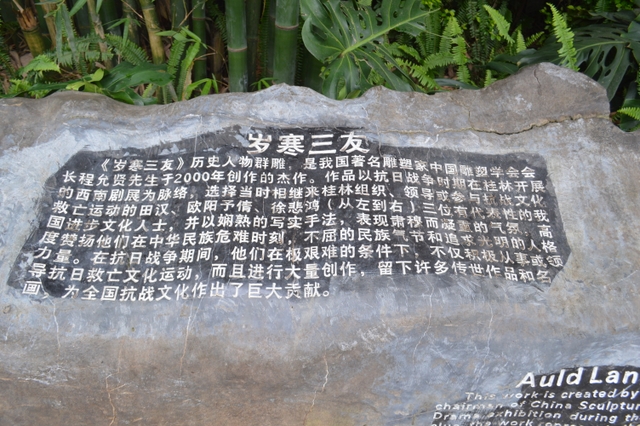 岁寒三友
《岁寒三友》历史人物群雕，是我国著名雕塑家中国雕塑学会会
长程允贤先生于2000年创作的杰作。作品以抗日战争时期在桂林开展
的西南剧展为脉络，选择当时相继来桂林组织、领导或参与抗战文化
救亡运动的田汉、欧阳予倩、徐悲鸿（从左到右）三位有代表性的我
国进步文化人士，并以娴熟的写实手法，表现肃穆而凝重的气氛，高
度赞扬他们在中华民族危难时刻，不屈的民族气节和追求光明的人格
力量。在抗日战争期间，他们在极艰难的条件下，不仅积极从事或领
导抗日救亡文化运动，而且进行大量创作，留下许多传世作品和名
画，为全国抗战文化作出了巨大贡献。
Auld Lan
This work is created by
chairman of China Sculptur
Drama exhibition during th